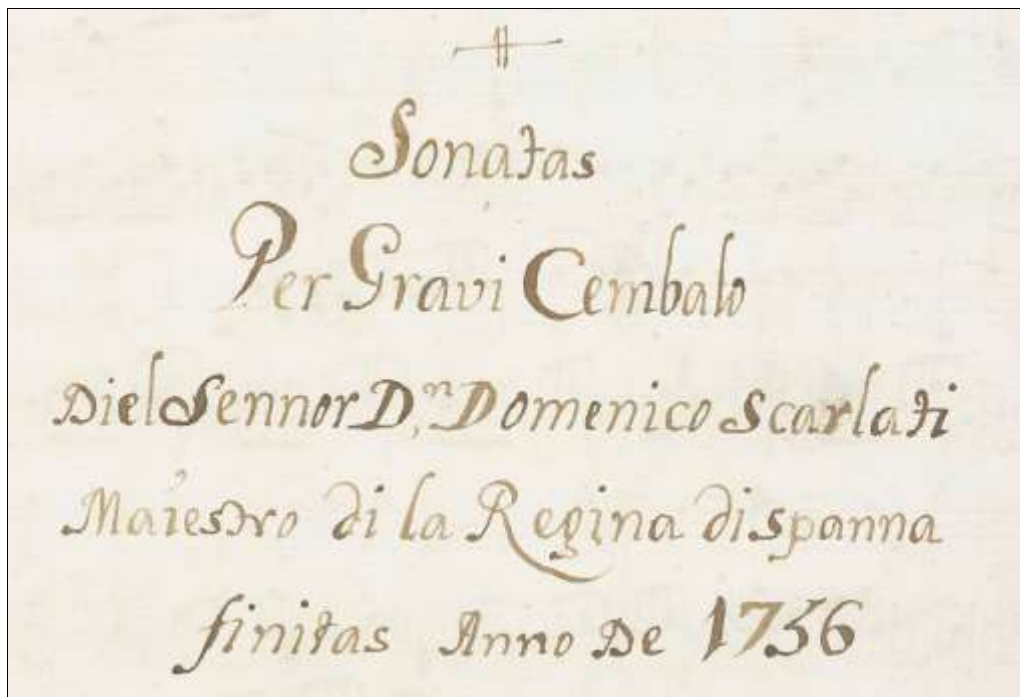 Sonatas
Per Gravi Cembalo
Diel Sennor D,ⁿ Domenico Scarlati
Maiestro di la Regina dispanna
finitas Anno De 1756